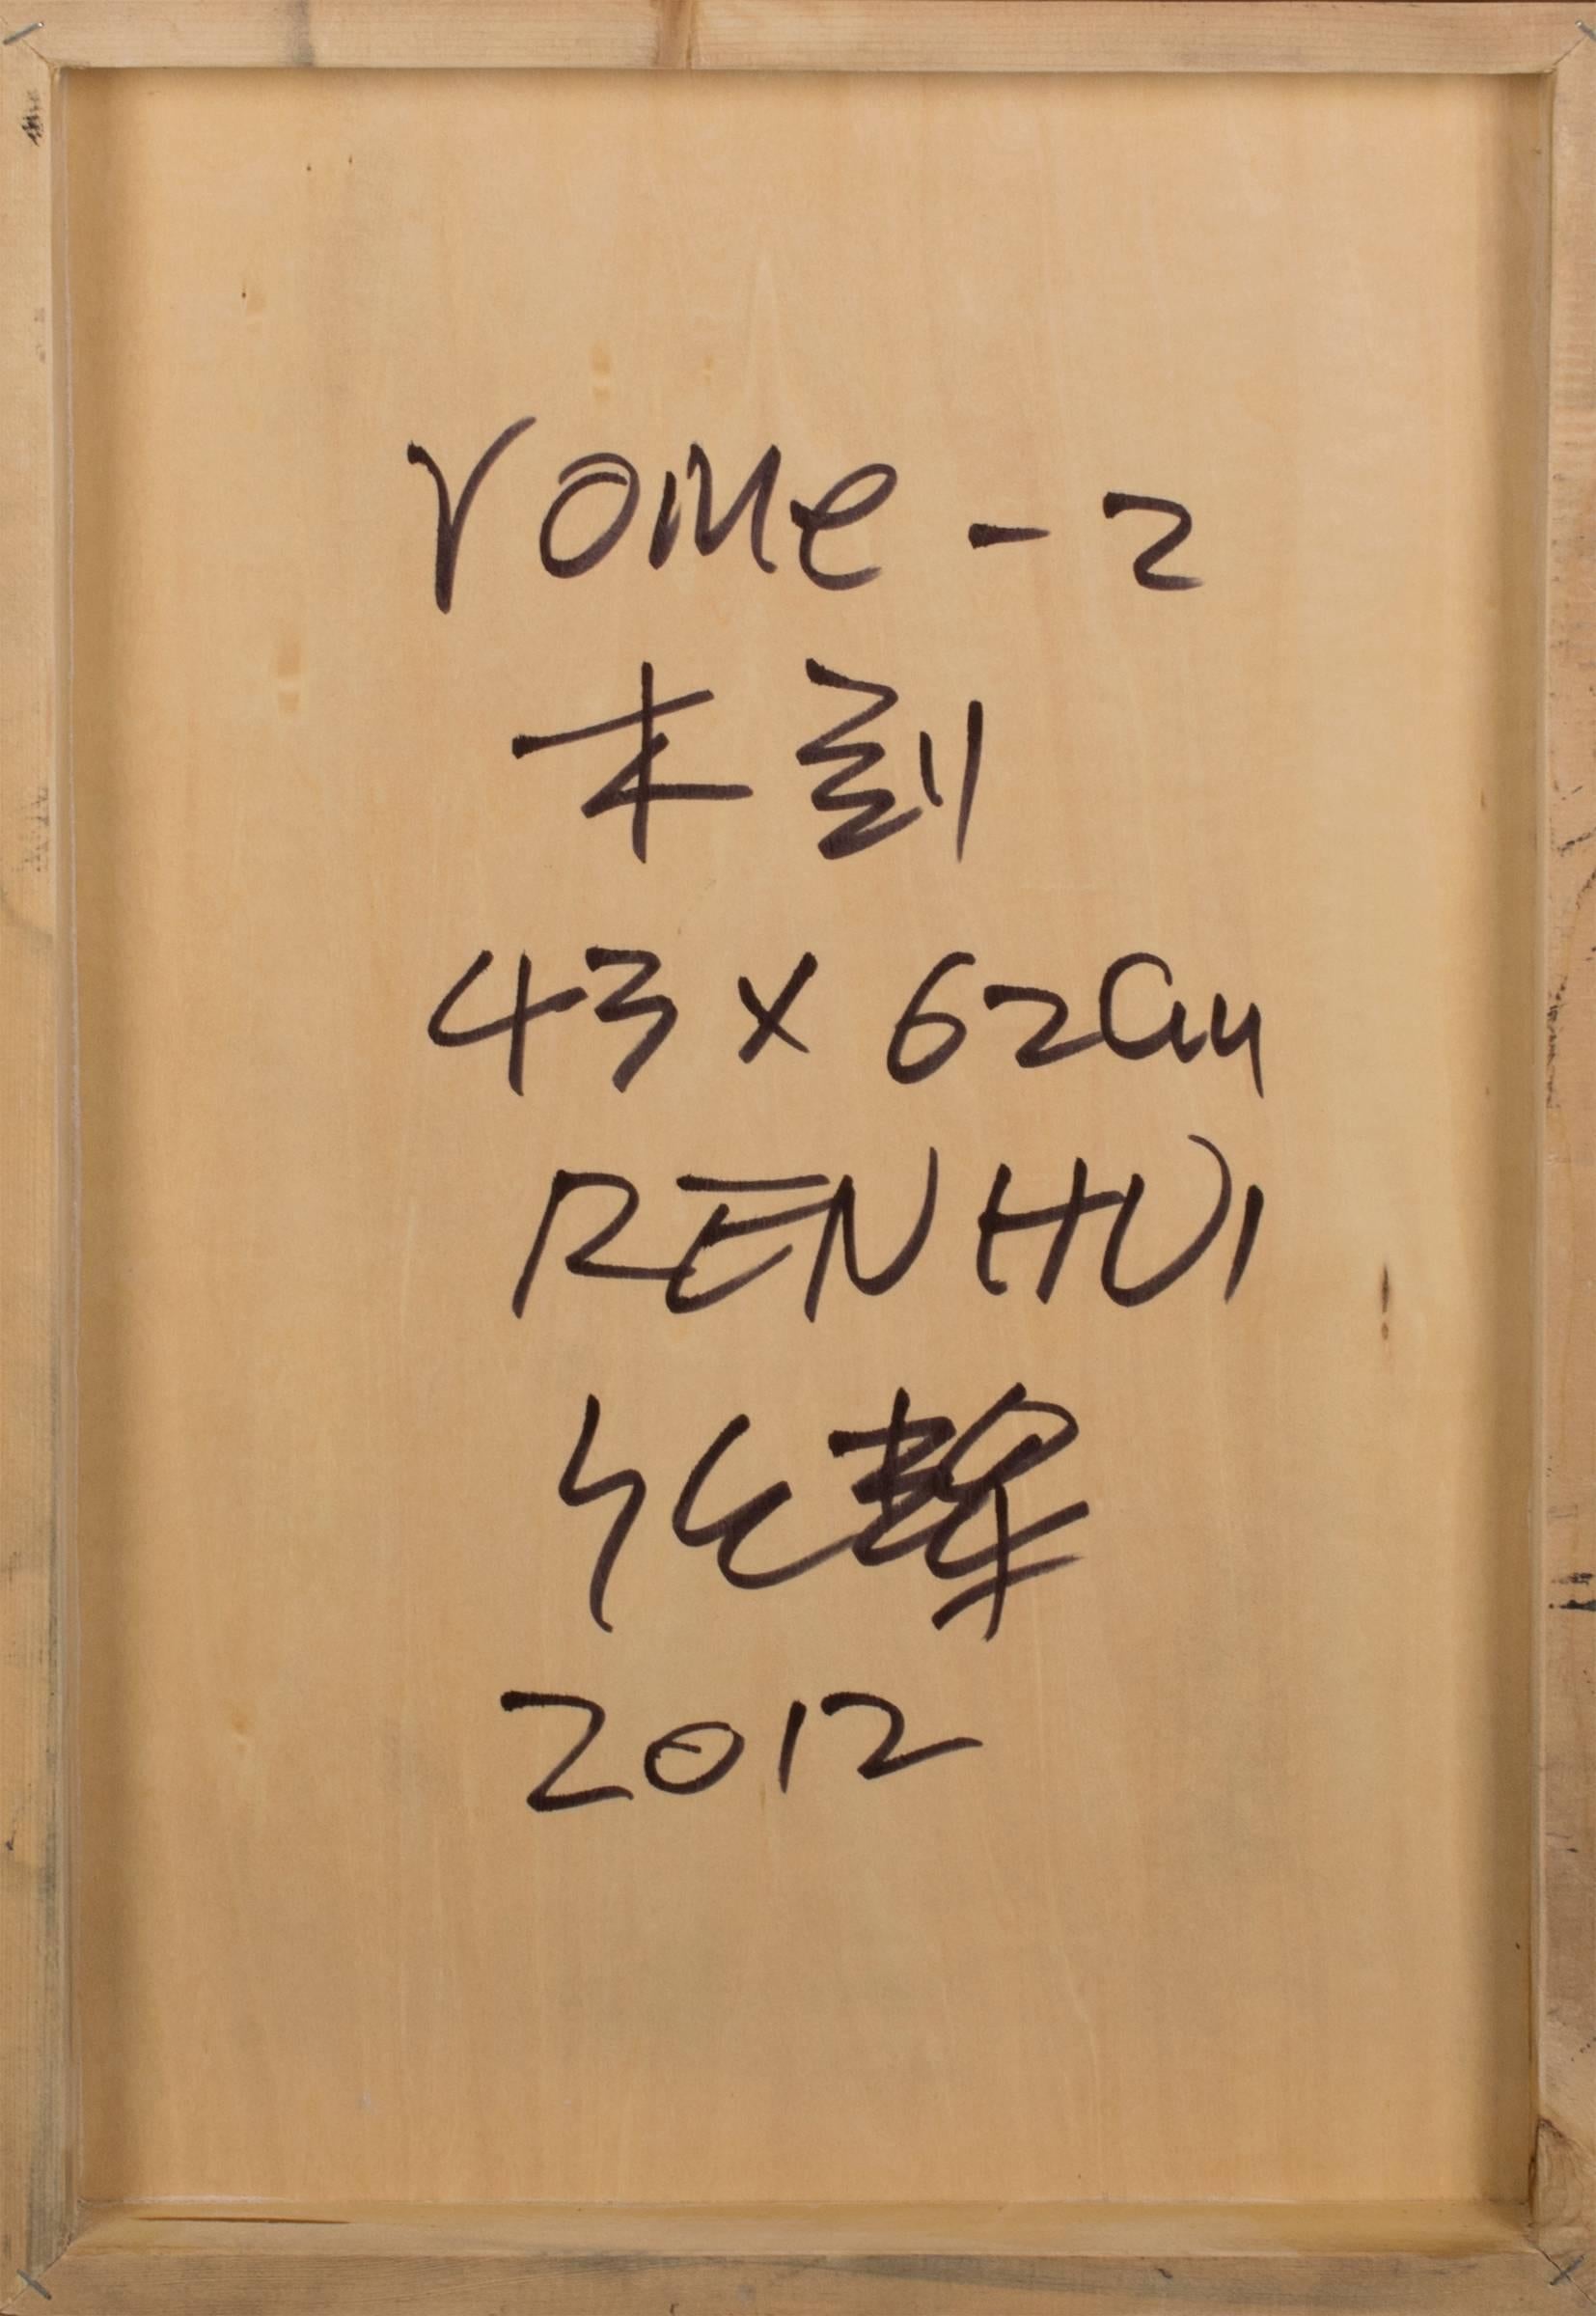 rome-2
木刻
43x62cm
RENHUI
任辉
2012